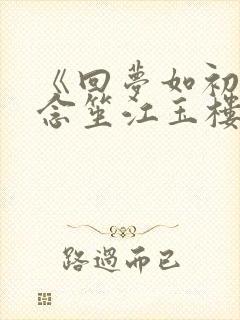 《回夢如初
念笙江玉樓
路過而已